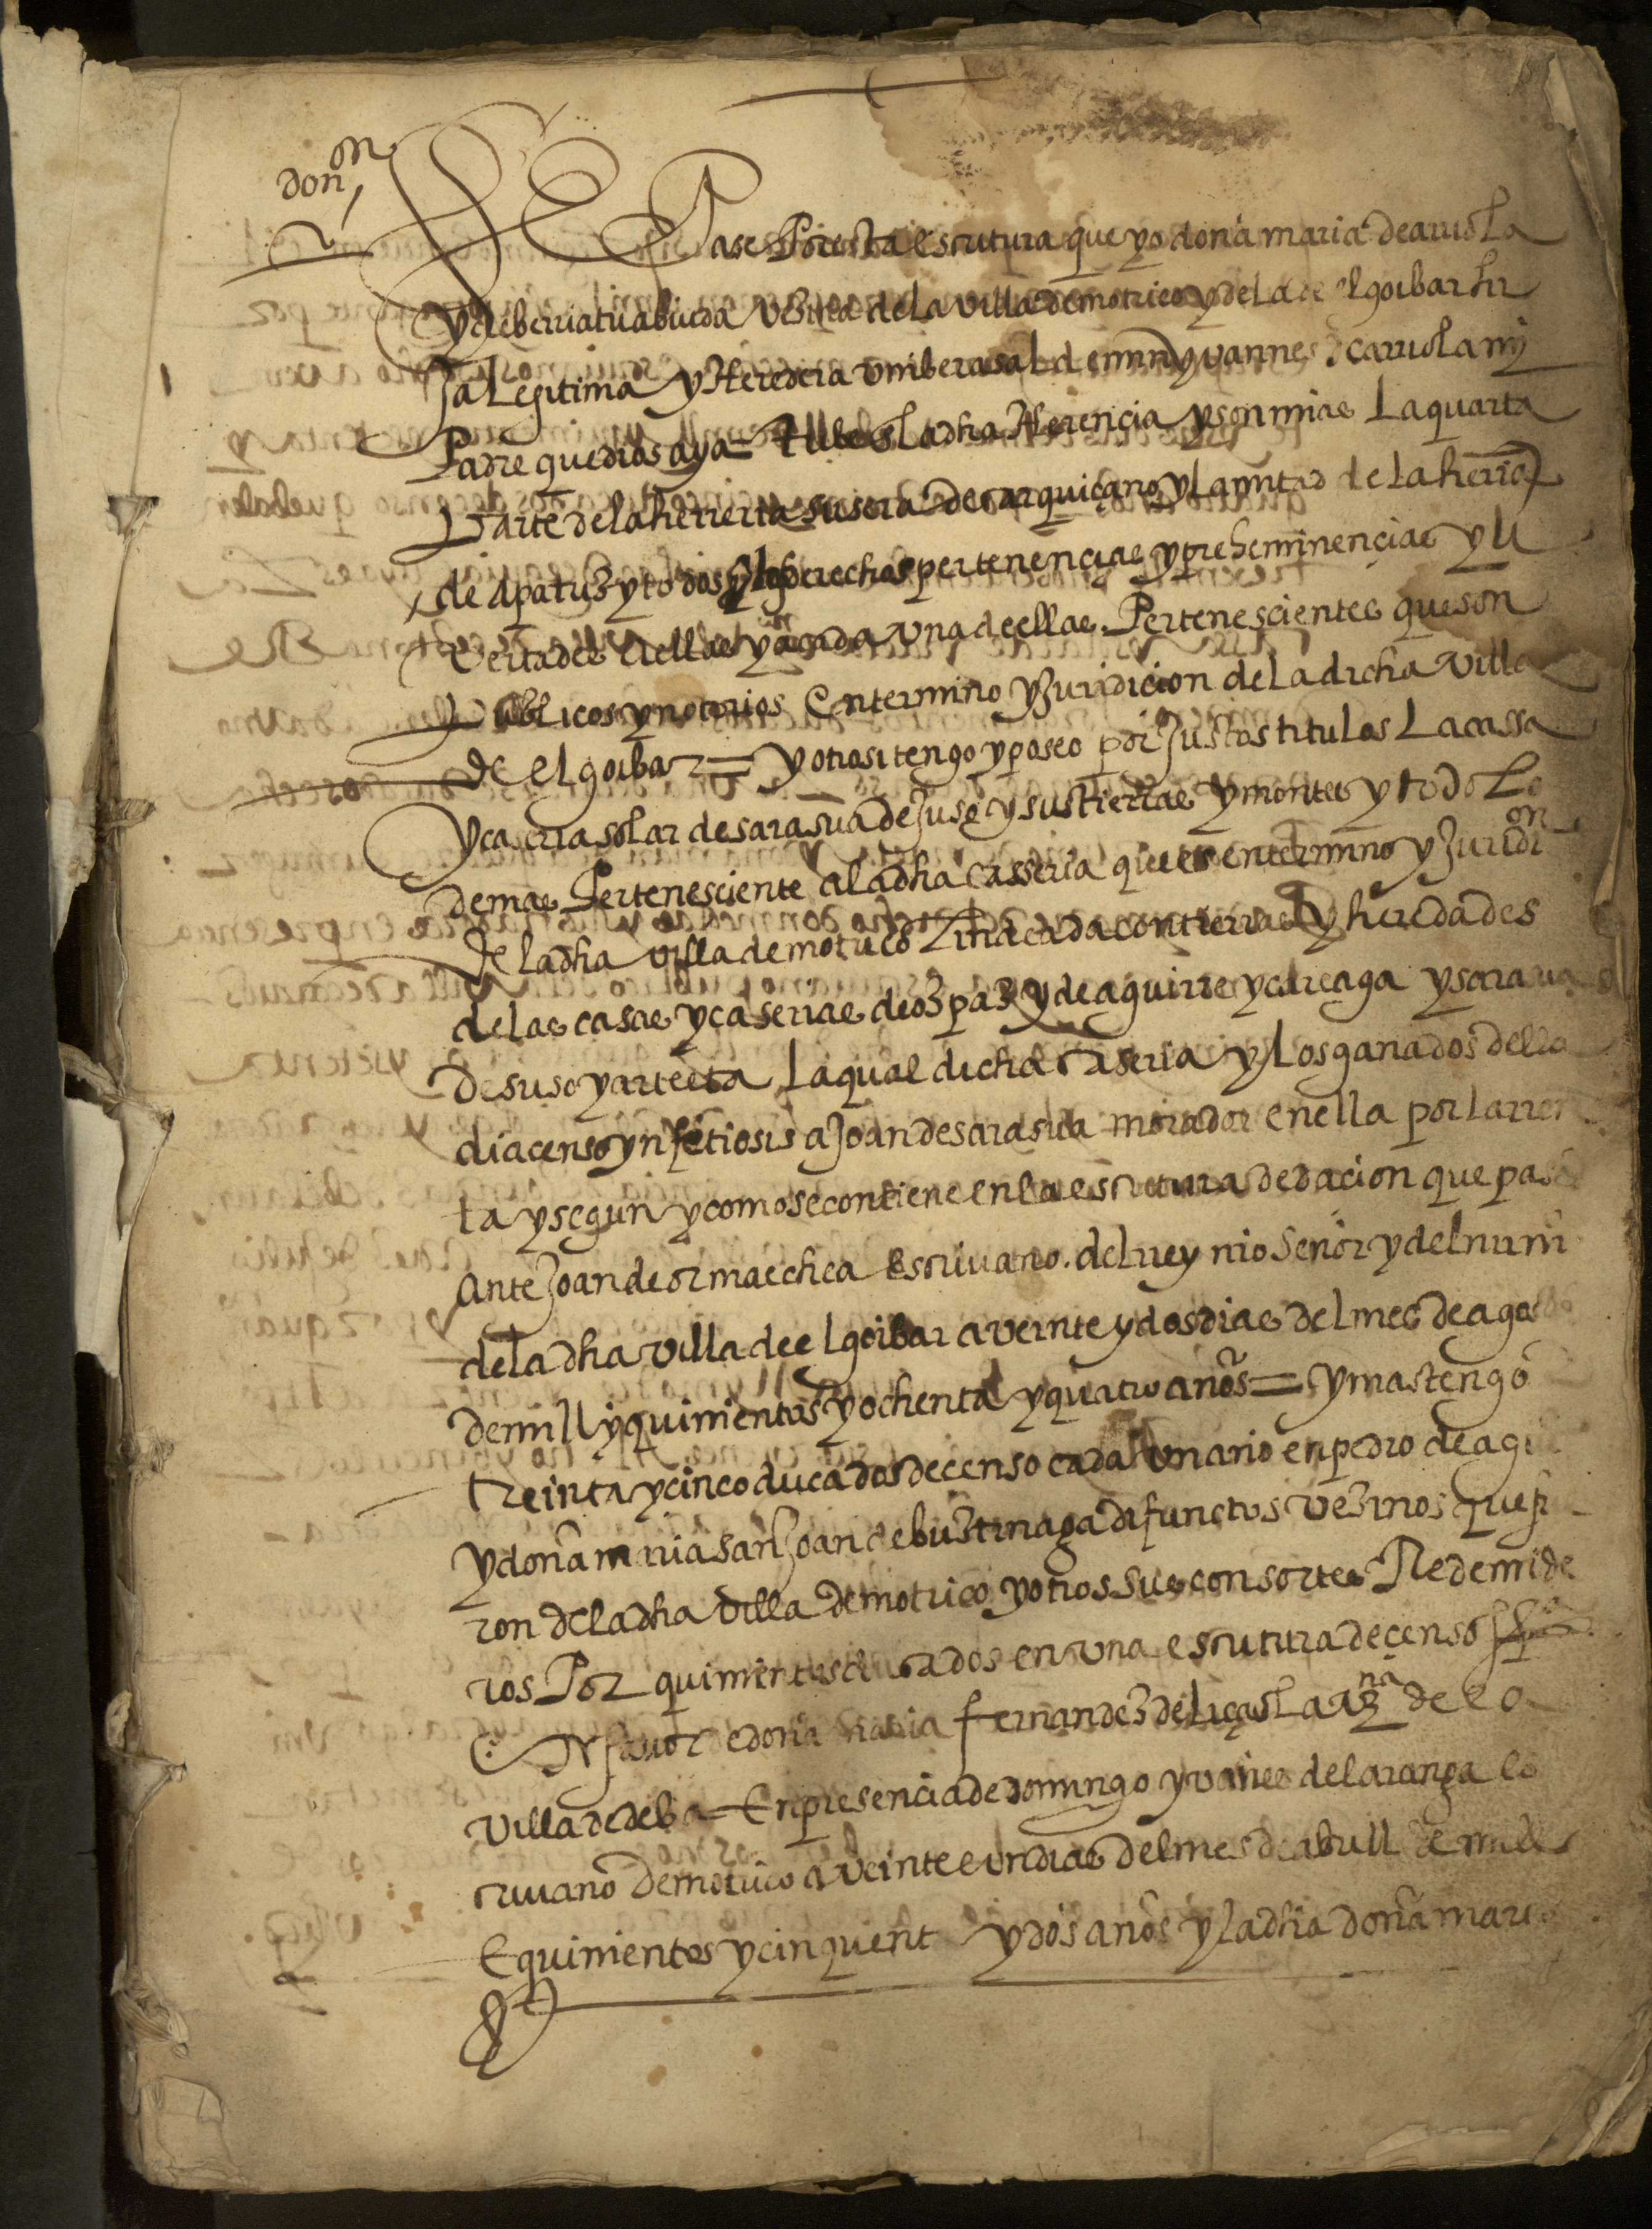 donon
Sepase Por esta escritura que yo doña maria de arriola
y de berriatua biuda vezina de la villa de motrico y de la de elgoibar hi
Ja Legitima y Heredera vniberssal de mnn yvannes de arriola my
Padre que dios aya = tube la dha Herencia y son mias La quarta
Parte de la herreria susera de carquiçano y la mitad de la herria
de apatuz y todos y los derechos pertenencias y preheminençias y li
Vertades dellas y a cada vna de ellas Pertenescientes que son
Publicos y notorios En termino y Juridicion de La dicha Villa
de elgoibar = y otrosi tengo y poseo por Justos titulos La cassa
y caseria solar de sarasua de Juso y sus tierras y montes y todo Lo
demas Perteneciente a la dha casseria que es en termino y Juridion
de la dha villa de motrico Lindeada con tierras y heredades
de las casas y caserias de ospas y de aguirre y careaga y sarasua
de suso y arteeta La qual dicha caseria y Los ganados della
di a censo ynfetiosis a Joan de sarasua morador en ella por la rren
ta y segun y como se contiene en la escritura de dacion que paso
ante Joan de ormaechea escrivano del rey nro Señor y del num
de la dha villa de elgoibar a veinte y dos dias del mes de agosto
de mill y quinientos y ochenta y quatro años = y mas tengo
treinta y cinco ducados de censo cada vn año en pedro de agi
y doña maria san Joan de bustinaga difunctos vezinos que fue
ron de la dha villa de motrico y otros sus consortes Redemide
ros Por quinientos ducados en vna escritura de censo
En favor de doña maria fernandez de liçaola vzna de la
Villa de deba = En presencia de domingo yvañes de laranga es
crivano de motrico a veinte e vn dias del mes de abrill de mill
E quinientos y cinquent y dos años y la dha doña maria